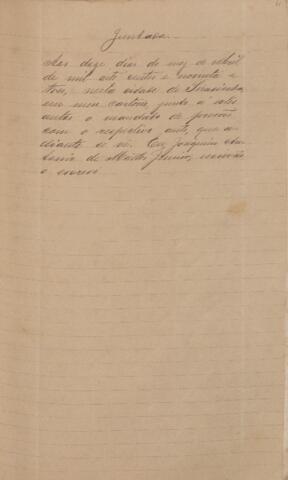 Juntada
Aos doze dias do mez de abril
de mil oito centos e noventa e
tres, nesta cidade de
em meu cartorio, junto a estes
autos o mandado de prisão
com o respectivo auto, que a-
diante se vê. Eu, Joaquim An-
tonio de Mattos Junior, escrivão
o escrevi